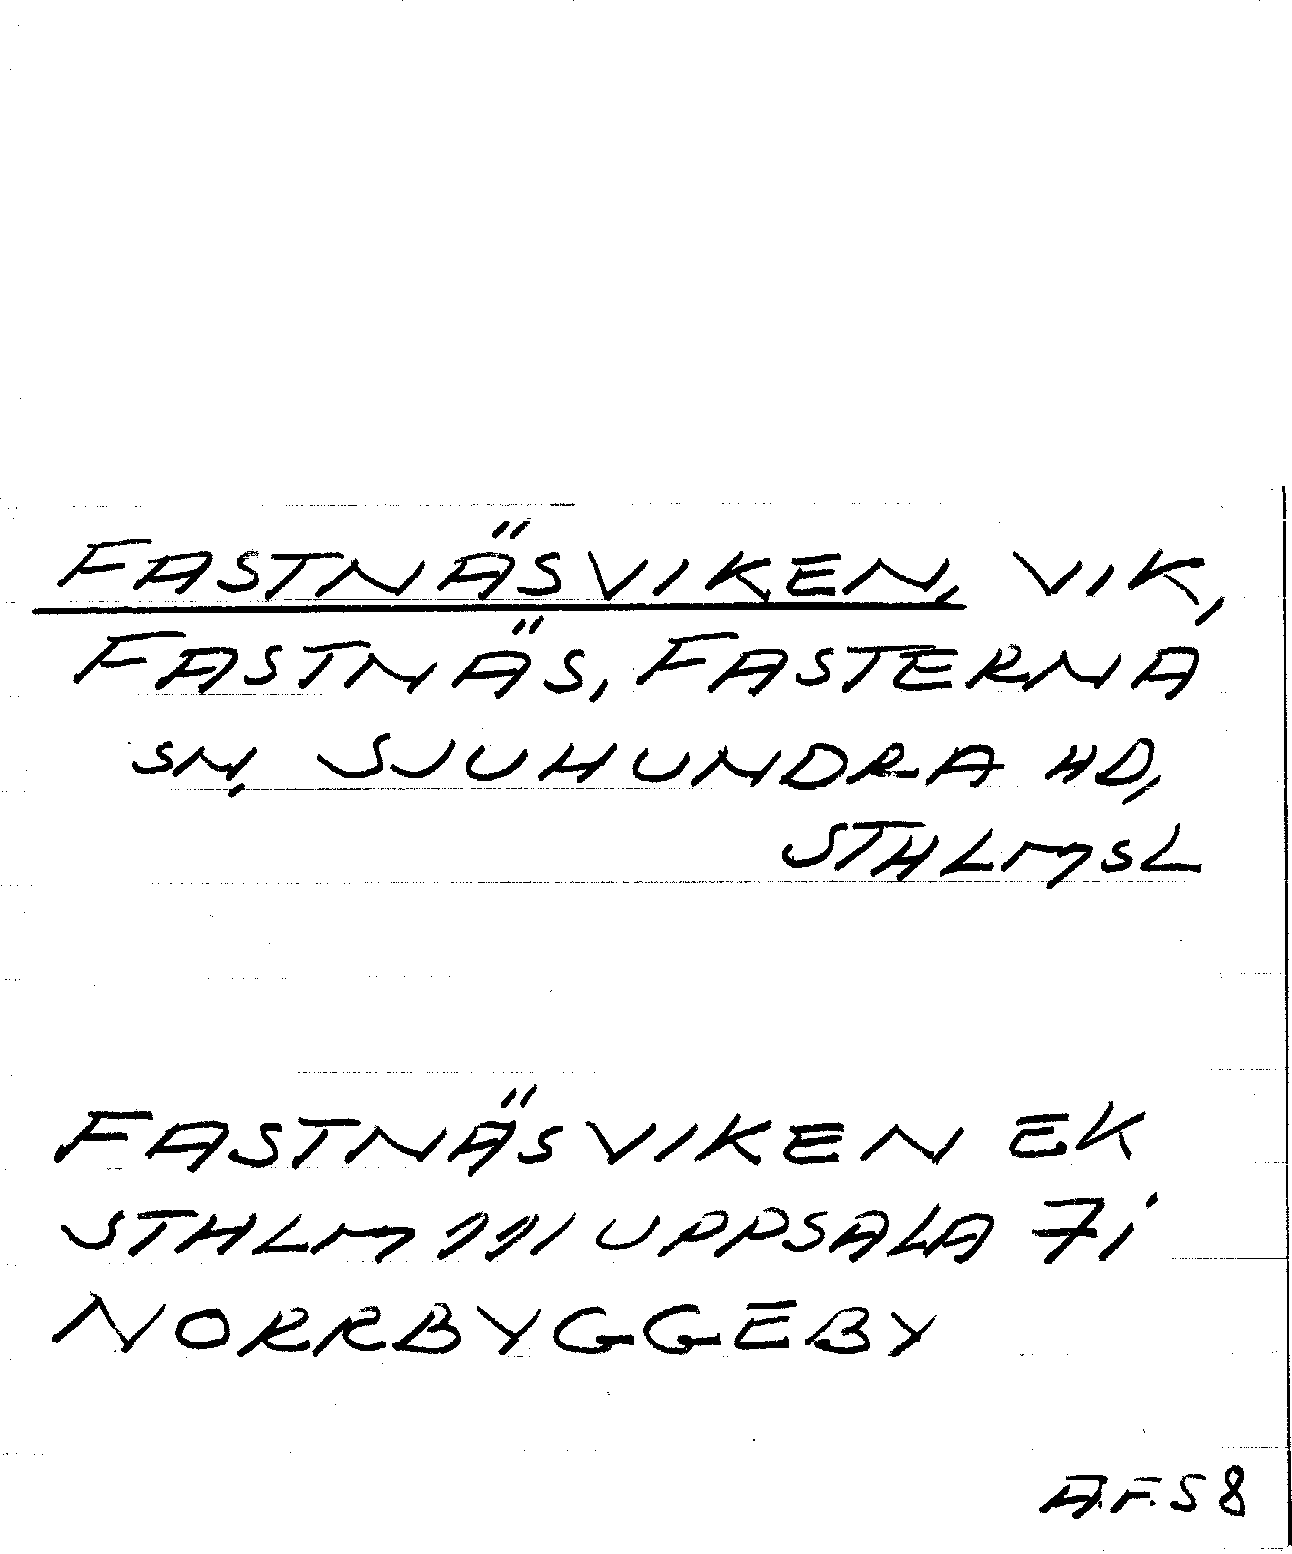 FASTNÄSVIKEN, VIK,
FASTNÄS, FASTERNA
SN, SJUHUNDRA HD,
STHLMSL
FASTNÄSVIKEN EK
STHLM 111 UPPSALA 7i
NORRBYGGEBY
A.F.S 8